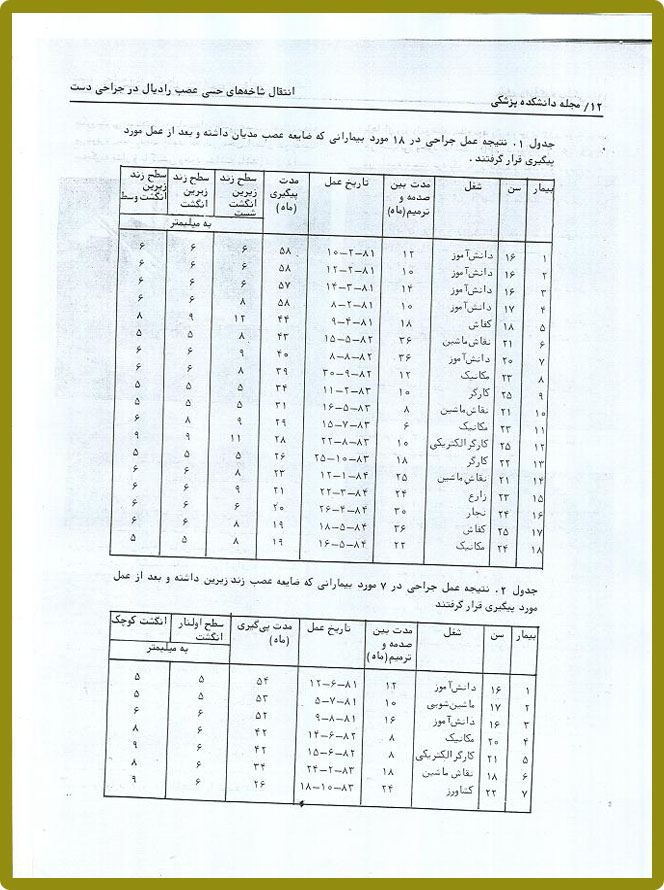 ۱۲/ مجله دانشکده پزشکی
انتقال شاخه‌های حسی عصب رادیال در جراحی دست
جدول ۱. نتیجه عمل جراحی در ۱۸ مورد بیمارانی که ضایعه عصب مدیان داشته و بعد از عمل مورد
پیگیری قرار گرفتند.
بیمار سن شغل مدت بین صدمه و ترمیم(ماه) تاریخ عمل مدت پیگیری (ماه) سطح زند زیرین انگشت شست سطح زند زیرین انگشت سطح زند زیرین انگشت وسط
به میلیمتر
۱ ۱۶ دانش‌آموز ۱۲ ۱۰-۲-۸۱ ۵۸ ۶ ۶ ۶
۲ ۱۶ دانش‌آموز ۱۰ ۱۲-۲-۸۱ ۵۸ ۶ ۶ ۶
۳ ۱۶ دانش‌آموز ۱۴ ۱۴-۳-۸۱ ۵۷ ۶ ۶ ۶
۴ ۱۷ دانش‌آموز ۱۰ ۸-۲-۸۱ ۵۸ ۸ ۶ ۶
۵ ۱۸ کفاش ۱۸ ۹-۴-۸۱ ۴۴ ۱۲ ۹ ۸
۶ ۲۱ نقاش ماشین ۳۶ ۱۵-۵-۸۲ ۴۳ ۸ ۵ ۵
۷ ۲۰ دانش‌آموز ۳۶ ۸-۸-۸۲ ۴۰ ۹ ۶ ۶
۸ ۲۳ مکانیک ۱۲ ۳۰-۹-۸۲ ۳۹ ۸ ۶ ۶
۹ ۲۵ کارگر ۱۰ ۱۱-۲-۸۳ ۳۴ ۵ ۵ ۵
۱۰ ۲۱ نقاش ماشین ۸ ۱۶-۵-۸۳ ۳۱ ۵ ۵ ۵
۱۱ ۲۳ مکانیک ۶ ۱۵-۷-۸۳ ۲۹ ۹ ۸ ۶
۱۲ ۲۵ کارگر الکتریکی ۱۰ ۲۲-۸-۸۳ ۲۸ ۱۱ ۹ ۹
۱۳ ۲۲ کارگر ۱۸ ۲۵-۱۰-۸۳ ۲۶ ۵ ۵ ۵
۱۴ ۲۱ نقاش ماشین ۲۵ ۱۲-۱-۸۴ ۲۳ ۸ ۶ ۶
۱۵ ۲۳ زارع ۲۴ ۲۲-۳-۸۴ ۲۱ ۹ ۶ ۶
۱۶ ۲۴ نجار ۳۰ ۲۶-۴-۸۴ ۲۰ ۶ ۶ ۶
۱۷ ۲۵ کفاش ۳۶ ۱۸-۵-۸۴ ۱۹ ۸ ۶ ۶
۱۸ ۲۴ مکانیک ۲۲ ۱۶-۵-۸۴ ۱۹ ۸ ۵ ۵
جدول ۲. نتیجه عمل جراحی در ۷ مورد بیمارانی که ضایعه عصب زند زیرین داشته و بعد از عمل
مورد پیگیری قرار گرفتند
بیمار سن شغل مدت بین صدمه و ترمیم(ماه) تاریخ عمل مدت پی‌گیری (ماه) سطح اولنار انگشت انگشت کوچک
به میلیمتر
۱ ۱۶ دانش‌آموز ۱۲ ۱۲-۶-۸۱ ۵۴ ۵ ۵
۲ ۱۷ ماشین‌شویی ۱۰ ۵-۷-۸۱ ۵۳ ۵ ۵
۳ ۱۶ دانش‌آموز ۱۶ ۹-۸-۸۱ ۵۲ ۶ ۶
۴ ۲۰ مکانیک ۸ ۱۴-۶-۸۲ ۴۲ ۶ ۸
۵ ۲۱ کارگر الکتریکی ۸ ۱۵-۶-۸۲ ۴۲ ۶ ۹
۶ ۱۸ نقاش ماشین ۱۸ ۲۴-۲-۸۳ ۳۴ ۶ ۸
۷ ۲۲ کشاورز ۲۴ ۱۸-۱۰-۸۳ ۲۶ ۶ ۹